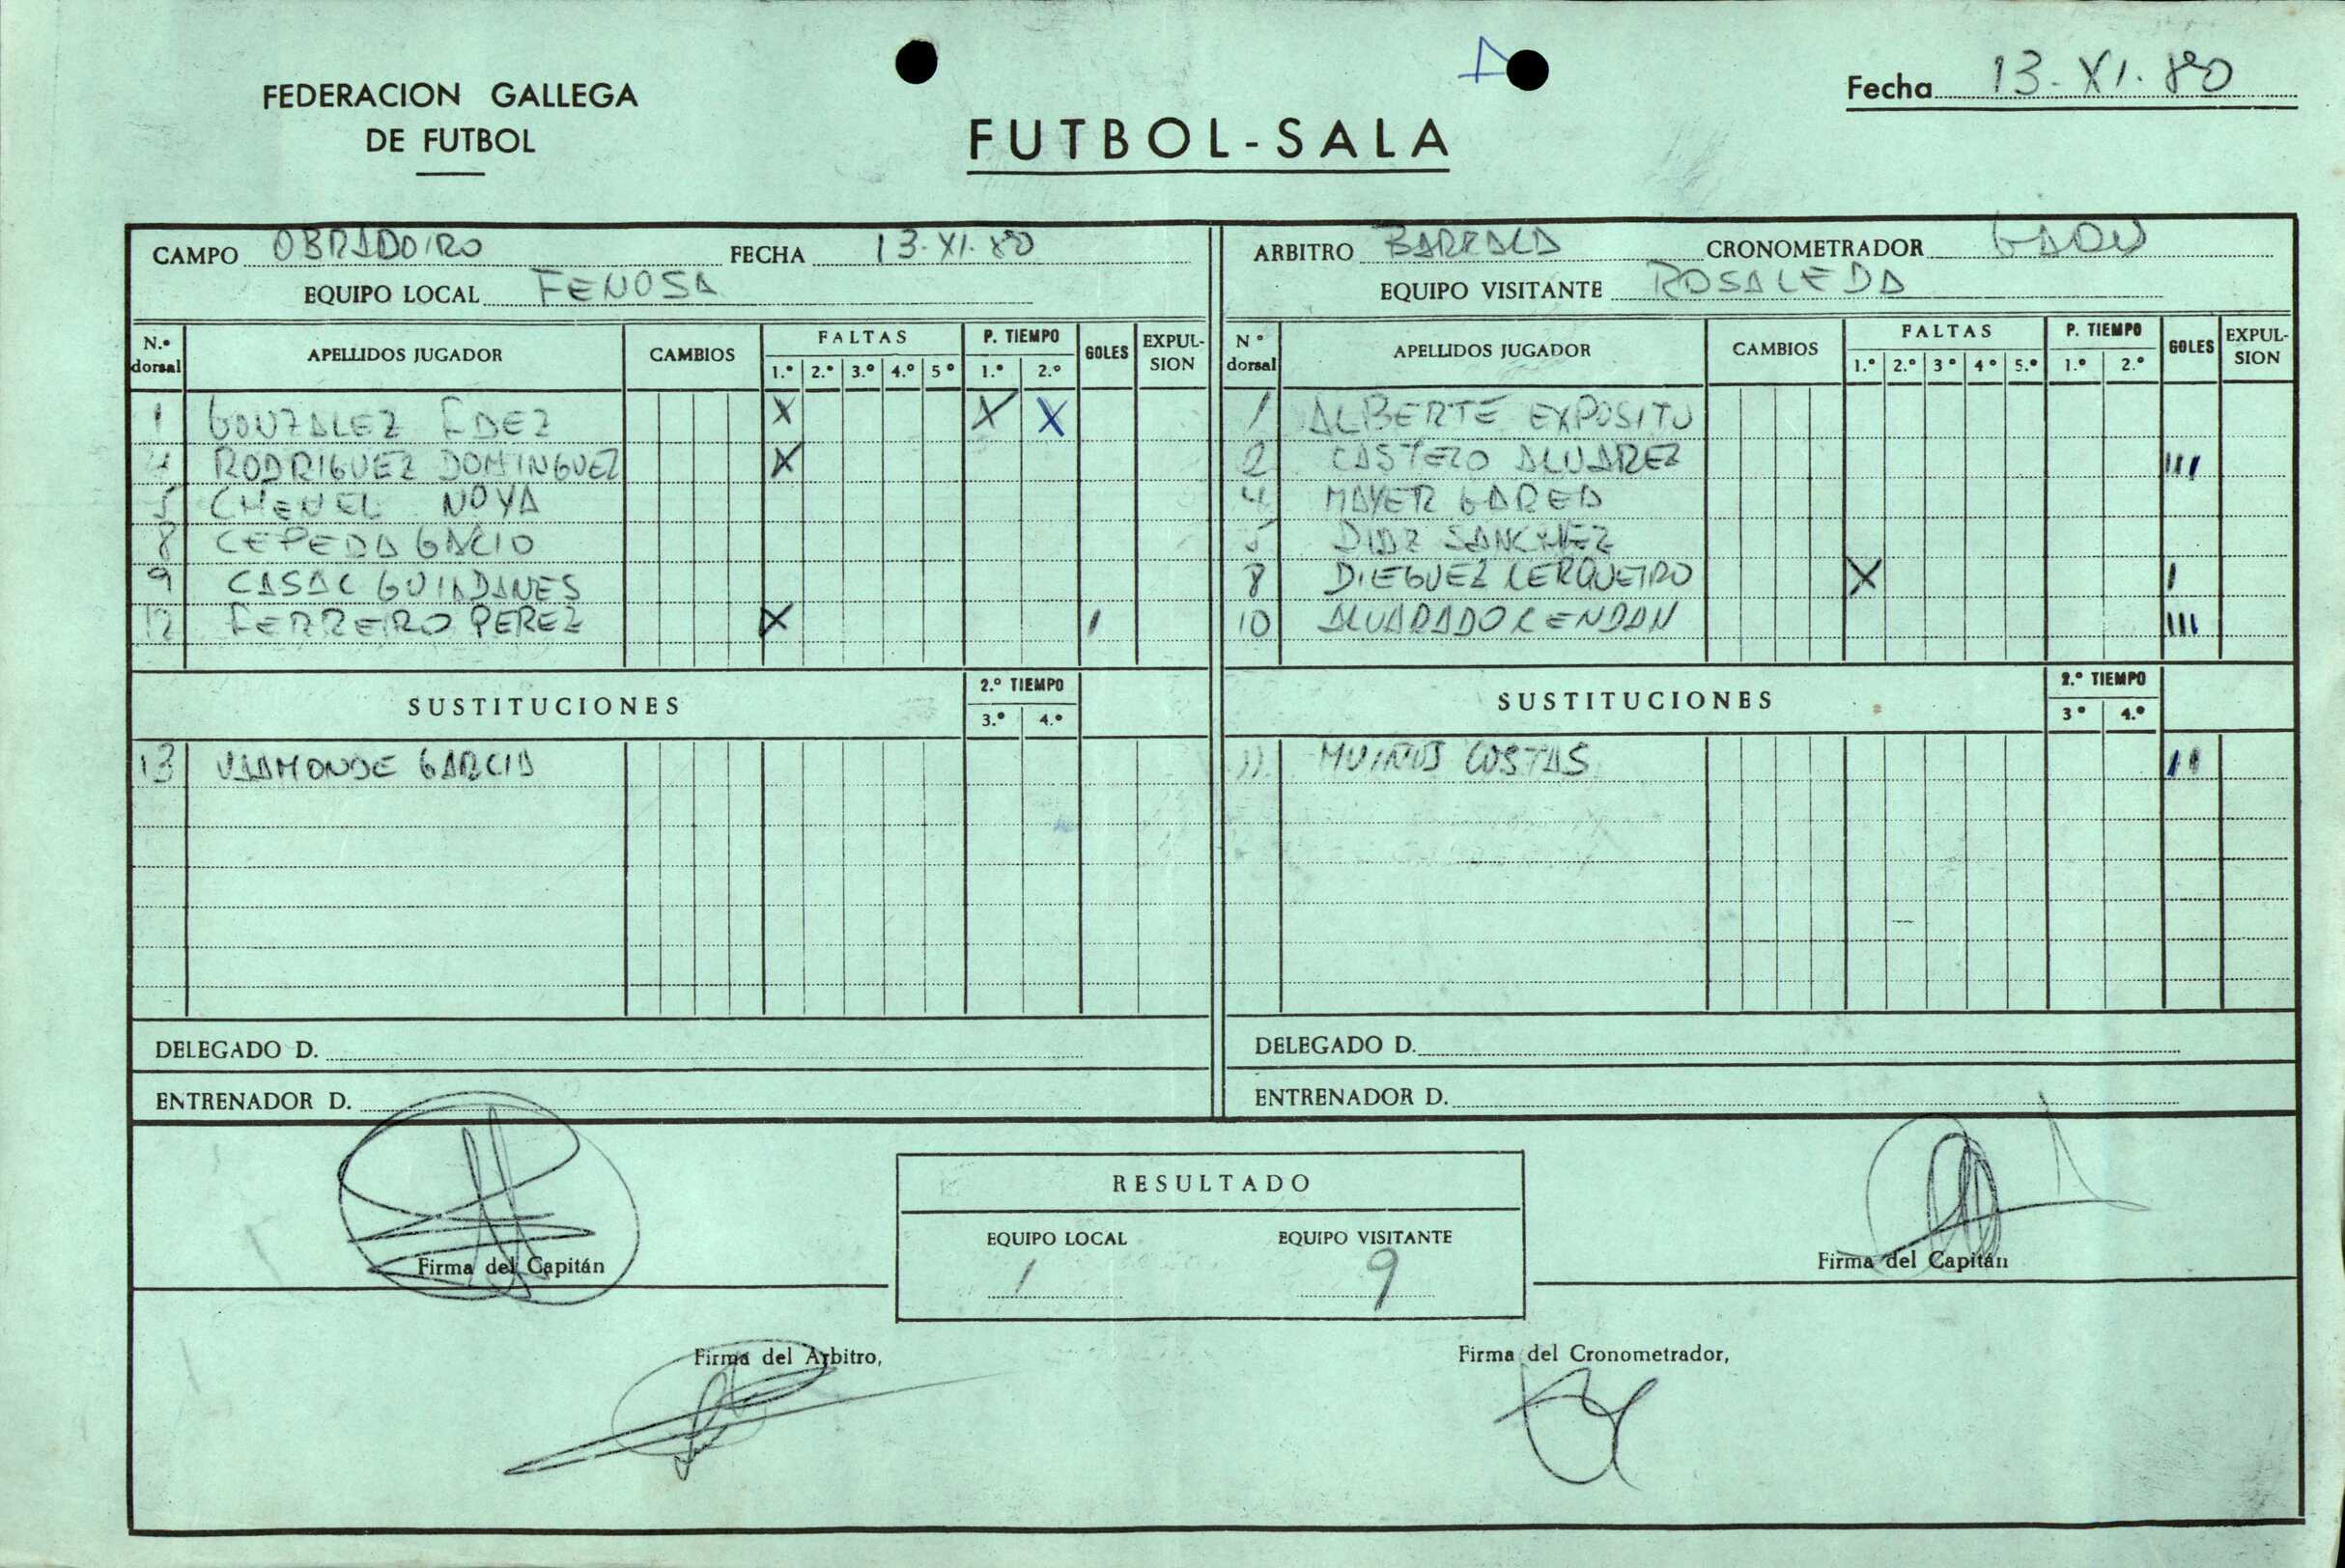 FEDERACION GALLEGA
DE FUTBOL
FUTBOL-SALA
Fecha 13-XI-80
CAMPO OBRADOIRO FECHA 13-XI-80
EQUIPO LOCAL FENOSA
N.º dorsal APELLIDOS JUGADOR CAMBIOS FALTAS 1.º 2.º 3.º 4.º 5º P. TIEMPO 1.º 2.º GOLES EXPULSION
1 GONZALEZ FDEZ X X X
4 RODRIGUEZ DOMINGUEZ X
5 CHENEL NOYA
8 CEPEDA GACIO
9 CASAL
12 FERREIRO PEREZ X I
SUSTITUCIONES 2.º TIEMPO 3.º 4.º
13 VIAMONDE GARCIA
DELEGADO D.
ENTRENADOR D.
ARBITRO CRONOMETRADOR
EQUIPO VISITANTE ROSALEDA
N º dorsal APELLIDOS JUGADOR CAMBIOS FALTAS 1.º 2.º 3º 4º 5.º P. TIEMPO 1.º 2.º GOLES EXPULSION
1 ALBERTE EXPOSITO
2 CASTRO ALVAREZ III
4 MAYER GAREA
5 DIAZ SANCHEZ
8 DIEGUEZ CERQUEIRO X I
10 ALVARADO CENDAN III
SUSTITUCIONES 2.º TIEMPO 3º 4.º
11 MUIÑOS COSTAS II
DELEGADO D.
ENTRENADOR D.
Firma del Capitán
RESULTADO
EQUIPO LOCAL EQUIPO VISITANTE
1 9
Firma del Capitán
Firma del Arbitro,
Firma del Cronometrador,